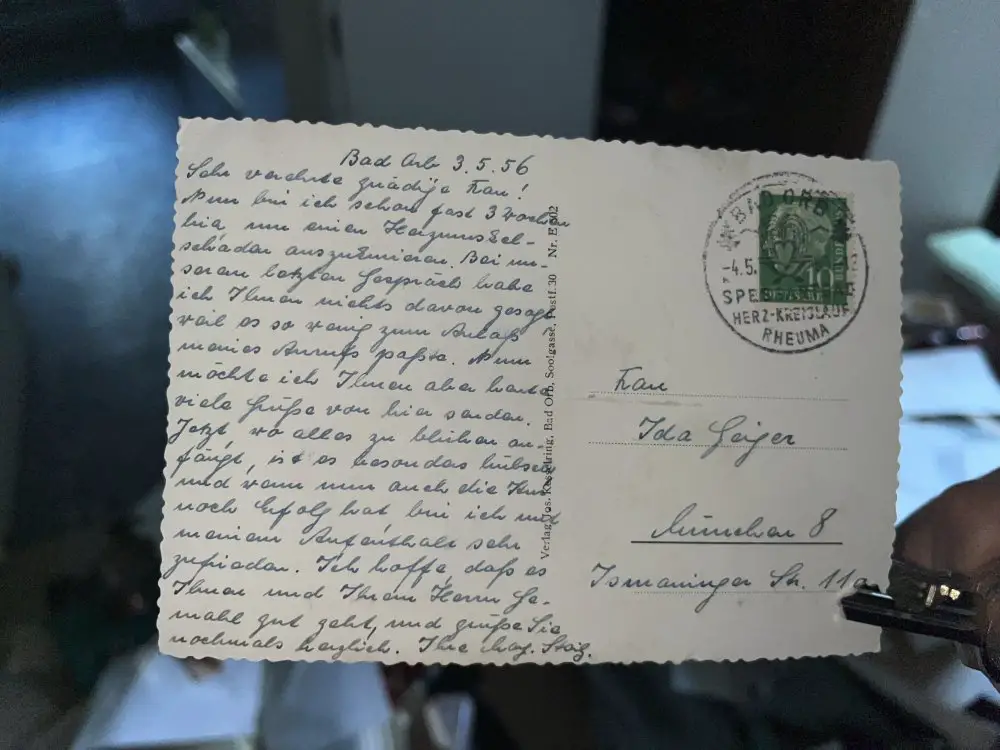 Bad Orb 3.5.56
Sehr verehrte gnädige Frau!
Nun bin ich schon fast 3 Wochen
hier, um einen Herzmuskel-
schaden auszukurieren. Bei un-
serem letzten Gespräch habe
ich Ihnen nichts davon gesagt
weil es so wenig zum Anlaß
meines Anrufs paßte. Nun
möchte ich Ihnen aber heute
viele Grüße von hier senden.
Jetzt, wo alles zu blühen an-
fängt, ist es besonders hübsch
und wenn nun auch die Kur
noch Erfolg hat bin ich mit
meinem Aufenthalt sehr
zufrieden. Ich hoffe, daß es
Ihnen und Ihrem Herrn Ge-
mahl gut geht, und grüße Sie
nochmals herzlich. Ihre
Verlag Jos. Kesselring, Bad Orb, Soolgasse, Postf. 30 Nr. E 502
BAD ORB
-4.5.
HERZ-KREISLAUF
RHEUMA
10
Frau
Ida Geiger
München 8
Ismaninger Str. 11a